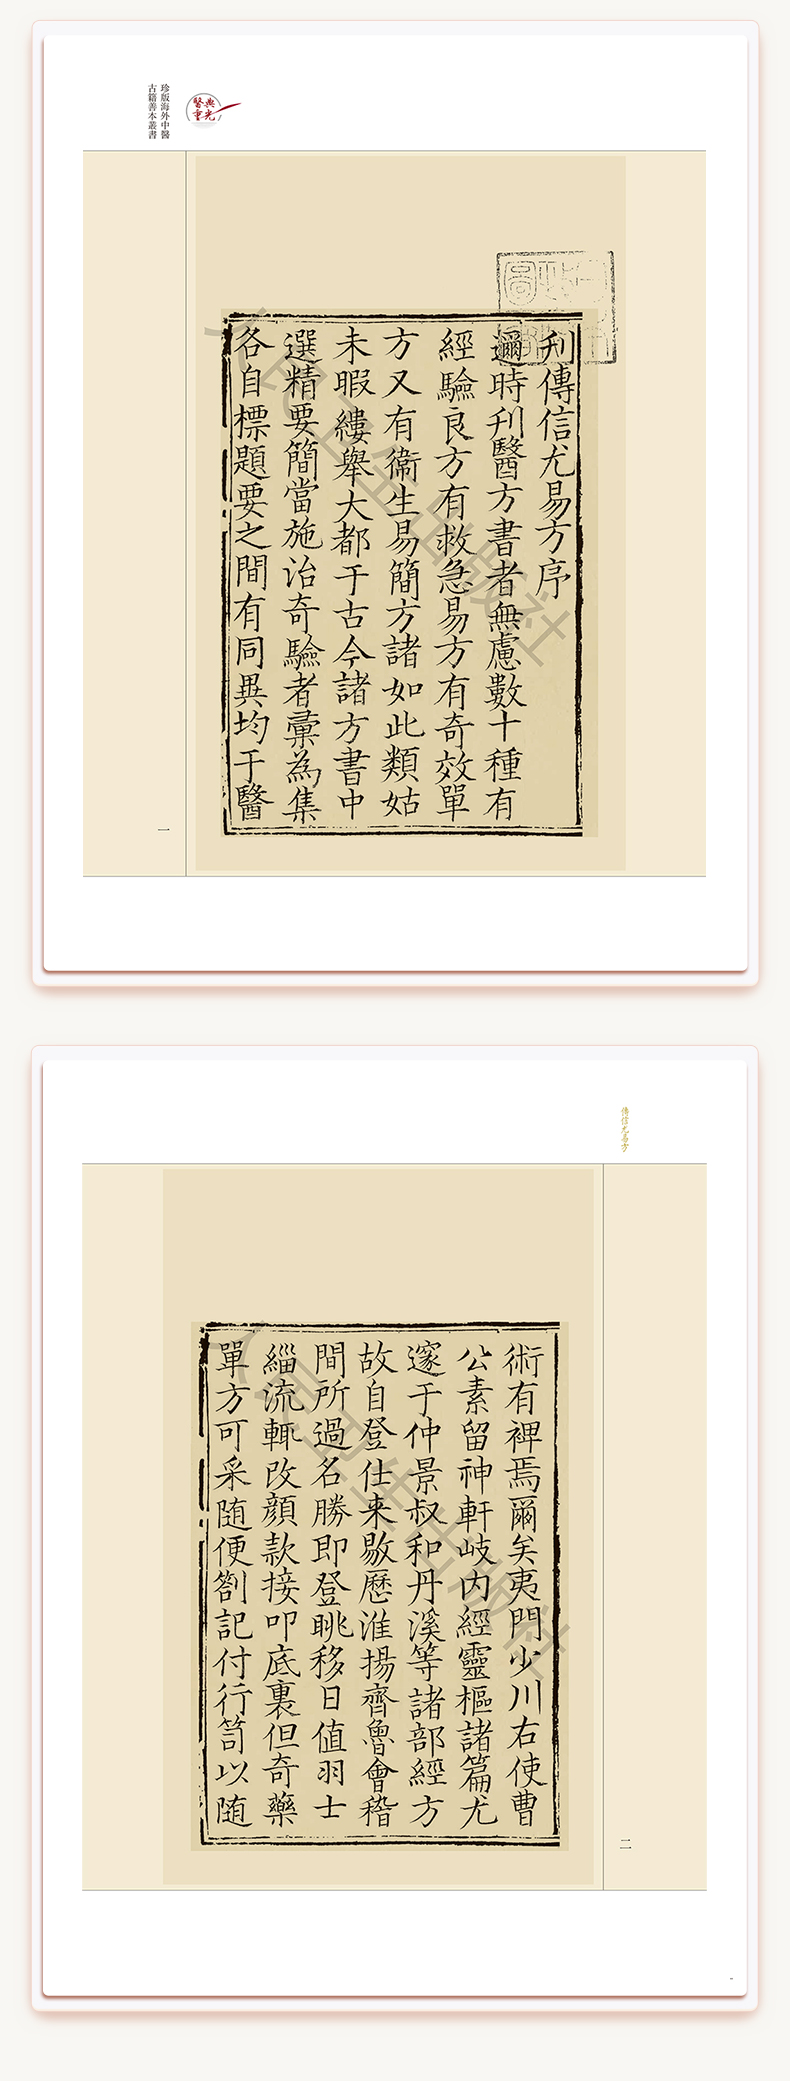 珍版海外中醫
古籍善本叢書
醫典重光
刋傳信尤易方序
邇時刋醫方書者無慮數十種有
經驗良方有救急易方有奇效單
方又有衛生易簡方諸如此類姑
未暇縷舉大都于古今諸方書中
選精要簡當施治奇驗者彙為集
各自標題要之間有同異均于醫
一
人民卫生出版社
傳信尤易方
術有裨焉爾矣夷門少川右使曹
公素留神軒岐內經靈樞諸篇尤
邃于仲景叔和丹溪等諸部經方
故自登仕来敭歷淮揚齊魯會稽
間所過名勝即登眺移日值羽士
緇流輒改顔款接叩底裏但奇藥
單方可采随便劄記付行笥以随
二
人民卫生出版社